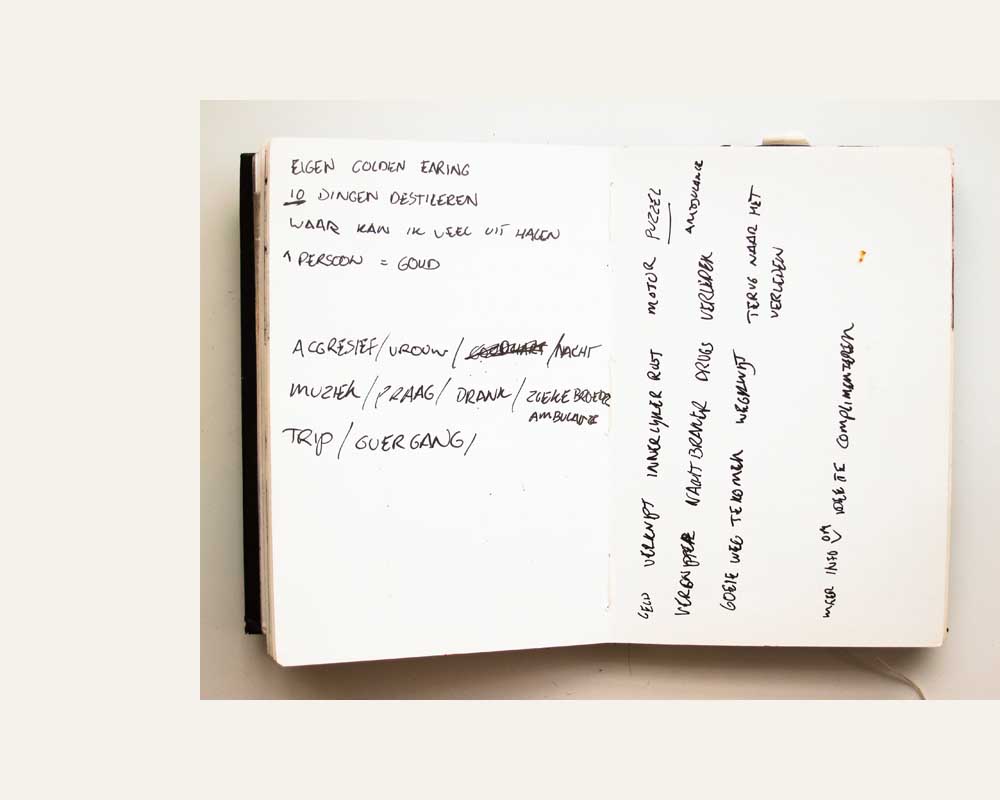 EIGEN GOLDEN EARING
10 DINGEN DESTILEREN
WAAR KAN IK VEEL UIT HALEN
1 PERSOON = GOUD
AGGRESIEF / VROUW / / NACHT
MUZIEK / PRAAG / DRANK / ZIEKE BROEDER
AMBULANCE
TRIP / OVERGANG /
GELD VERKNIPT INNERLIJKER RUST MOTOR PUZZEL
VERGRIPPER NACHTBRAKER DRUGS VERLEDEN AMBULANCE
GOEIE WEG TE KOMEN WEGKWIJT TERUG NAAR HET
VERLEDEN
MEER INFO OM IDEE TE COMPLIMENTEREN